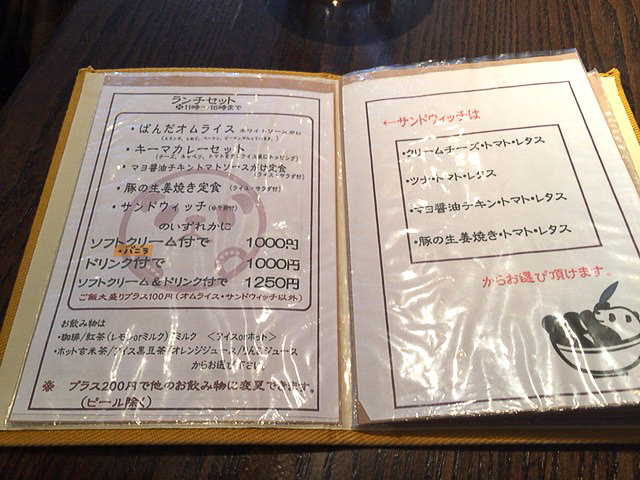 ランチセット
※11時〜16時まで
・ぱんだオムライス ホワイトソースがけ
・キーマカレーセット
・マヨ醤油チキントマトソースがけ定食
(ライス・サラダ付)
・豚の生姜焼き定食 (ライス・サラダ付)
・サンドウィッチ (ゆで卵付)
のいずれかに
ソフトクリーム付で 1000円
・バニラ
ドリンク付で 1000円
ソフトクリーム&ドリンク付で 1250円
ご飯大盛りプラス100円(オムライス・サンドウィッチ以外)
お飲み物は
・珈琲/紅茶(レモンorミルク)/ミルク <アイスorホット>
・ホット玄米茶/アイス黒豆茶/オレンジジュース/りんごジュース
からお選び下さい。
※ プラス200円で他のお飲み物に変更できます。
(ビール除く)
←サンドウィッチは
・クリームチーズ・トマト・レタス
・ツナ・トマト・レタス
・マヨ醤油チキン・トマト・レタス
・豚の生姜焼き・トマト・レタス
からお選び頂けます。